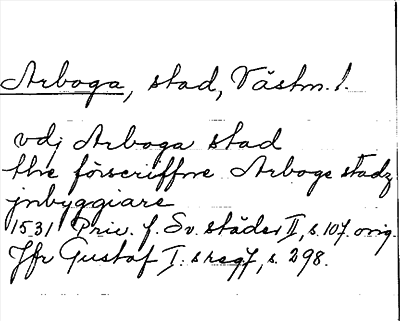 Arboga, stad, Västm. l.
vdj Arboga stad
the förscriffne Arboge stadz
jnbyggiare
1531 Priv. f. Sv. städer II, s. 107. orig.
Jfr Gustaf I:s reg 7, s. 298.